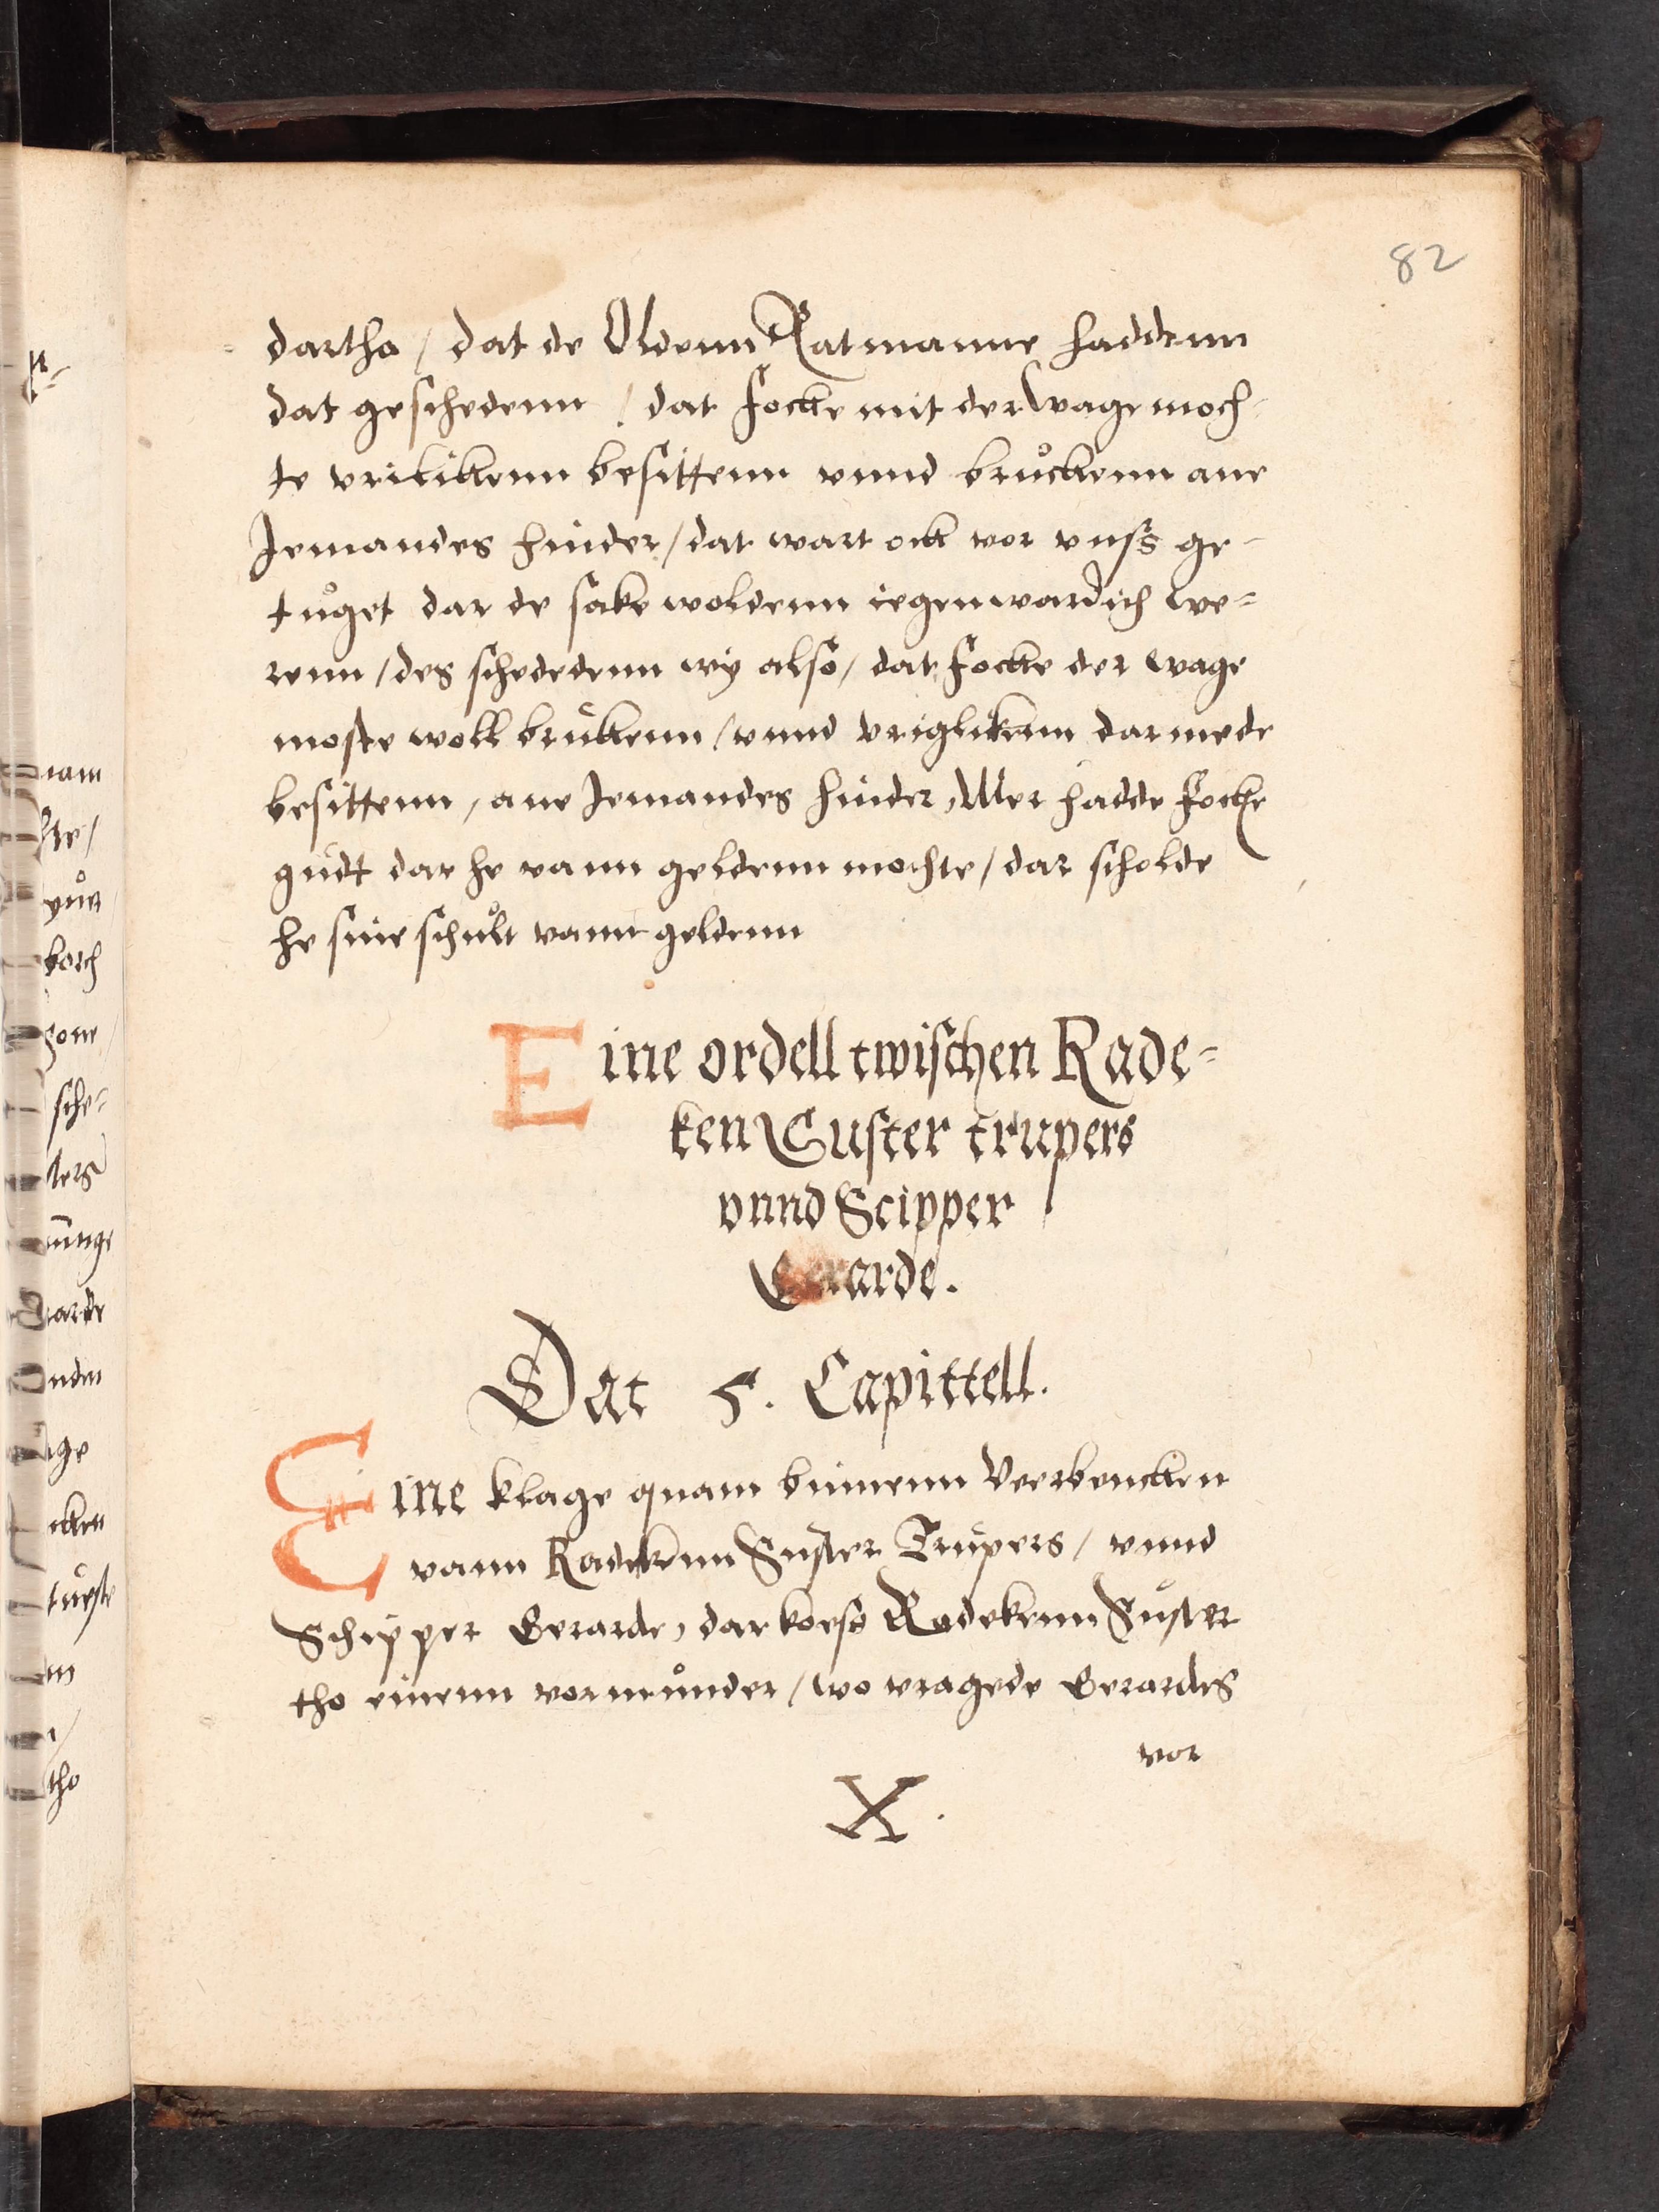 82
dartho / dat de Oldenn Ratmanne haddenn
dat geschedenn / dat Focke mit der wage moch-
te vrilikenn besittenn vnnd bruͦckenn ane
Jemandes hinder / dat wart ock vor vnss ge-
tuͦget dar de sake woldenn iegenwardich we=
renn / des schededenn wy also / dat Focke der wage
moste woll bruͦkenn / vnnd vriglikenn darmede
besittenn, ane Jemandes hinder, Wer hadde Focke
gudt dar he vann geldenn mochte / dar scholde
he sine schuͦlt vann geldenn
Eine ordell twischen Rade=
ken Suster trupers
vnnd Scipper
Gerarde.
Dat 5. Capittell.
Eine klage quam binnenn Veerbencken
vann Radekenn Suster Truͦpers / vnnd
Schipper Gerarde, dar koess Radekenn Suͦster
tho einenn vormuͦnder / wo vragede Gerardes
vor
X.